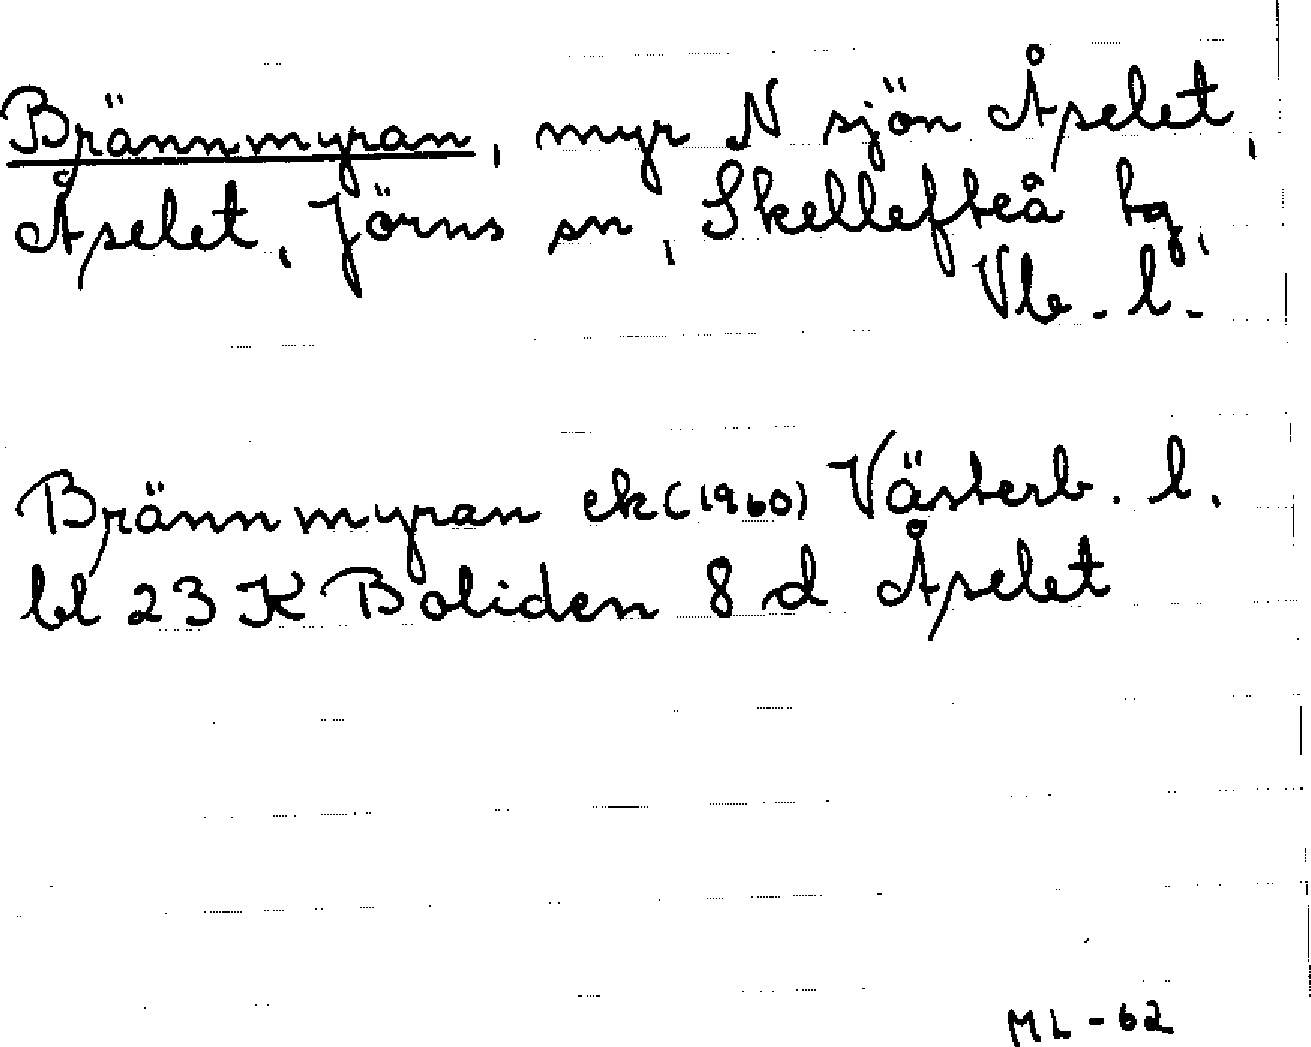 Brännmyran, myr N sjön Åpelet,
Åpelet, Jörns sn, Skellefteå tg,
Vb. l.
Brännmyran ek (1960) Västerb. l.
bl 23 K Boliden 8 d Åselet
ML-62